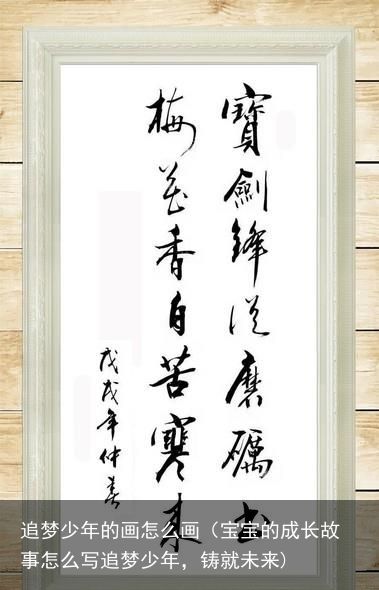 寶劍鋒從磨礪出
梅花香自苦寒來
戊戌年仲春
追梦少年的画怎么画（宝宝的成长故
事怎么写追梦少年，铸就未来）